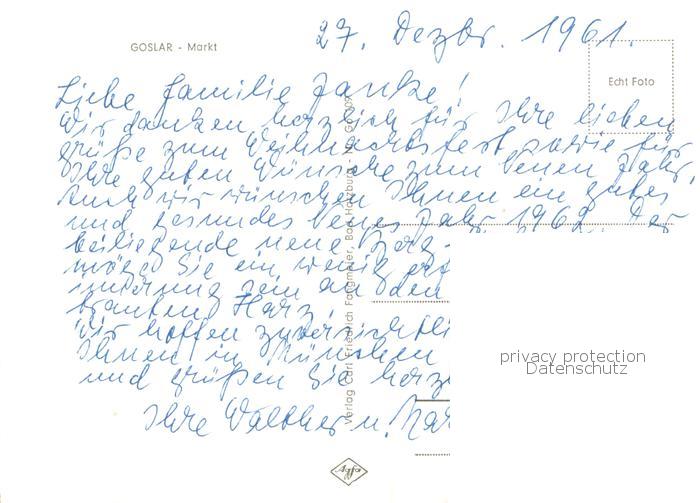 27. Dezbr. 1961.
GOSLAR - Markt
Echt Foto
Liebe Familie Janke!
Wir danken herzlich für Ihre lieben
Grüße zum Weihnachtsfest sowie für
Ihre guten Wünsche zum Neuen Jahr,
Auch wir wünschen Ihnen ein gutes
und gesundes Neues Jahr 1962. Der
beiliegende neue
möge Sie ein wenig
innerung sein an den
trauten Harz.
Wir hoffen zuversichtli
Ihnen in München
und grüßen Sie herz
Ihre Walther u. Mar
Verlag Carl Friedrich Fangmeier, Bad Harzburg
privacy protection
Datenschutz
Agfa